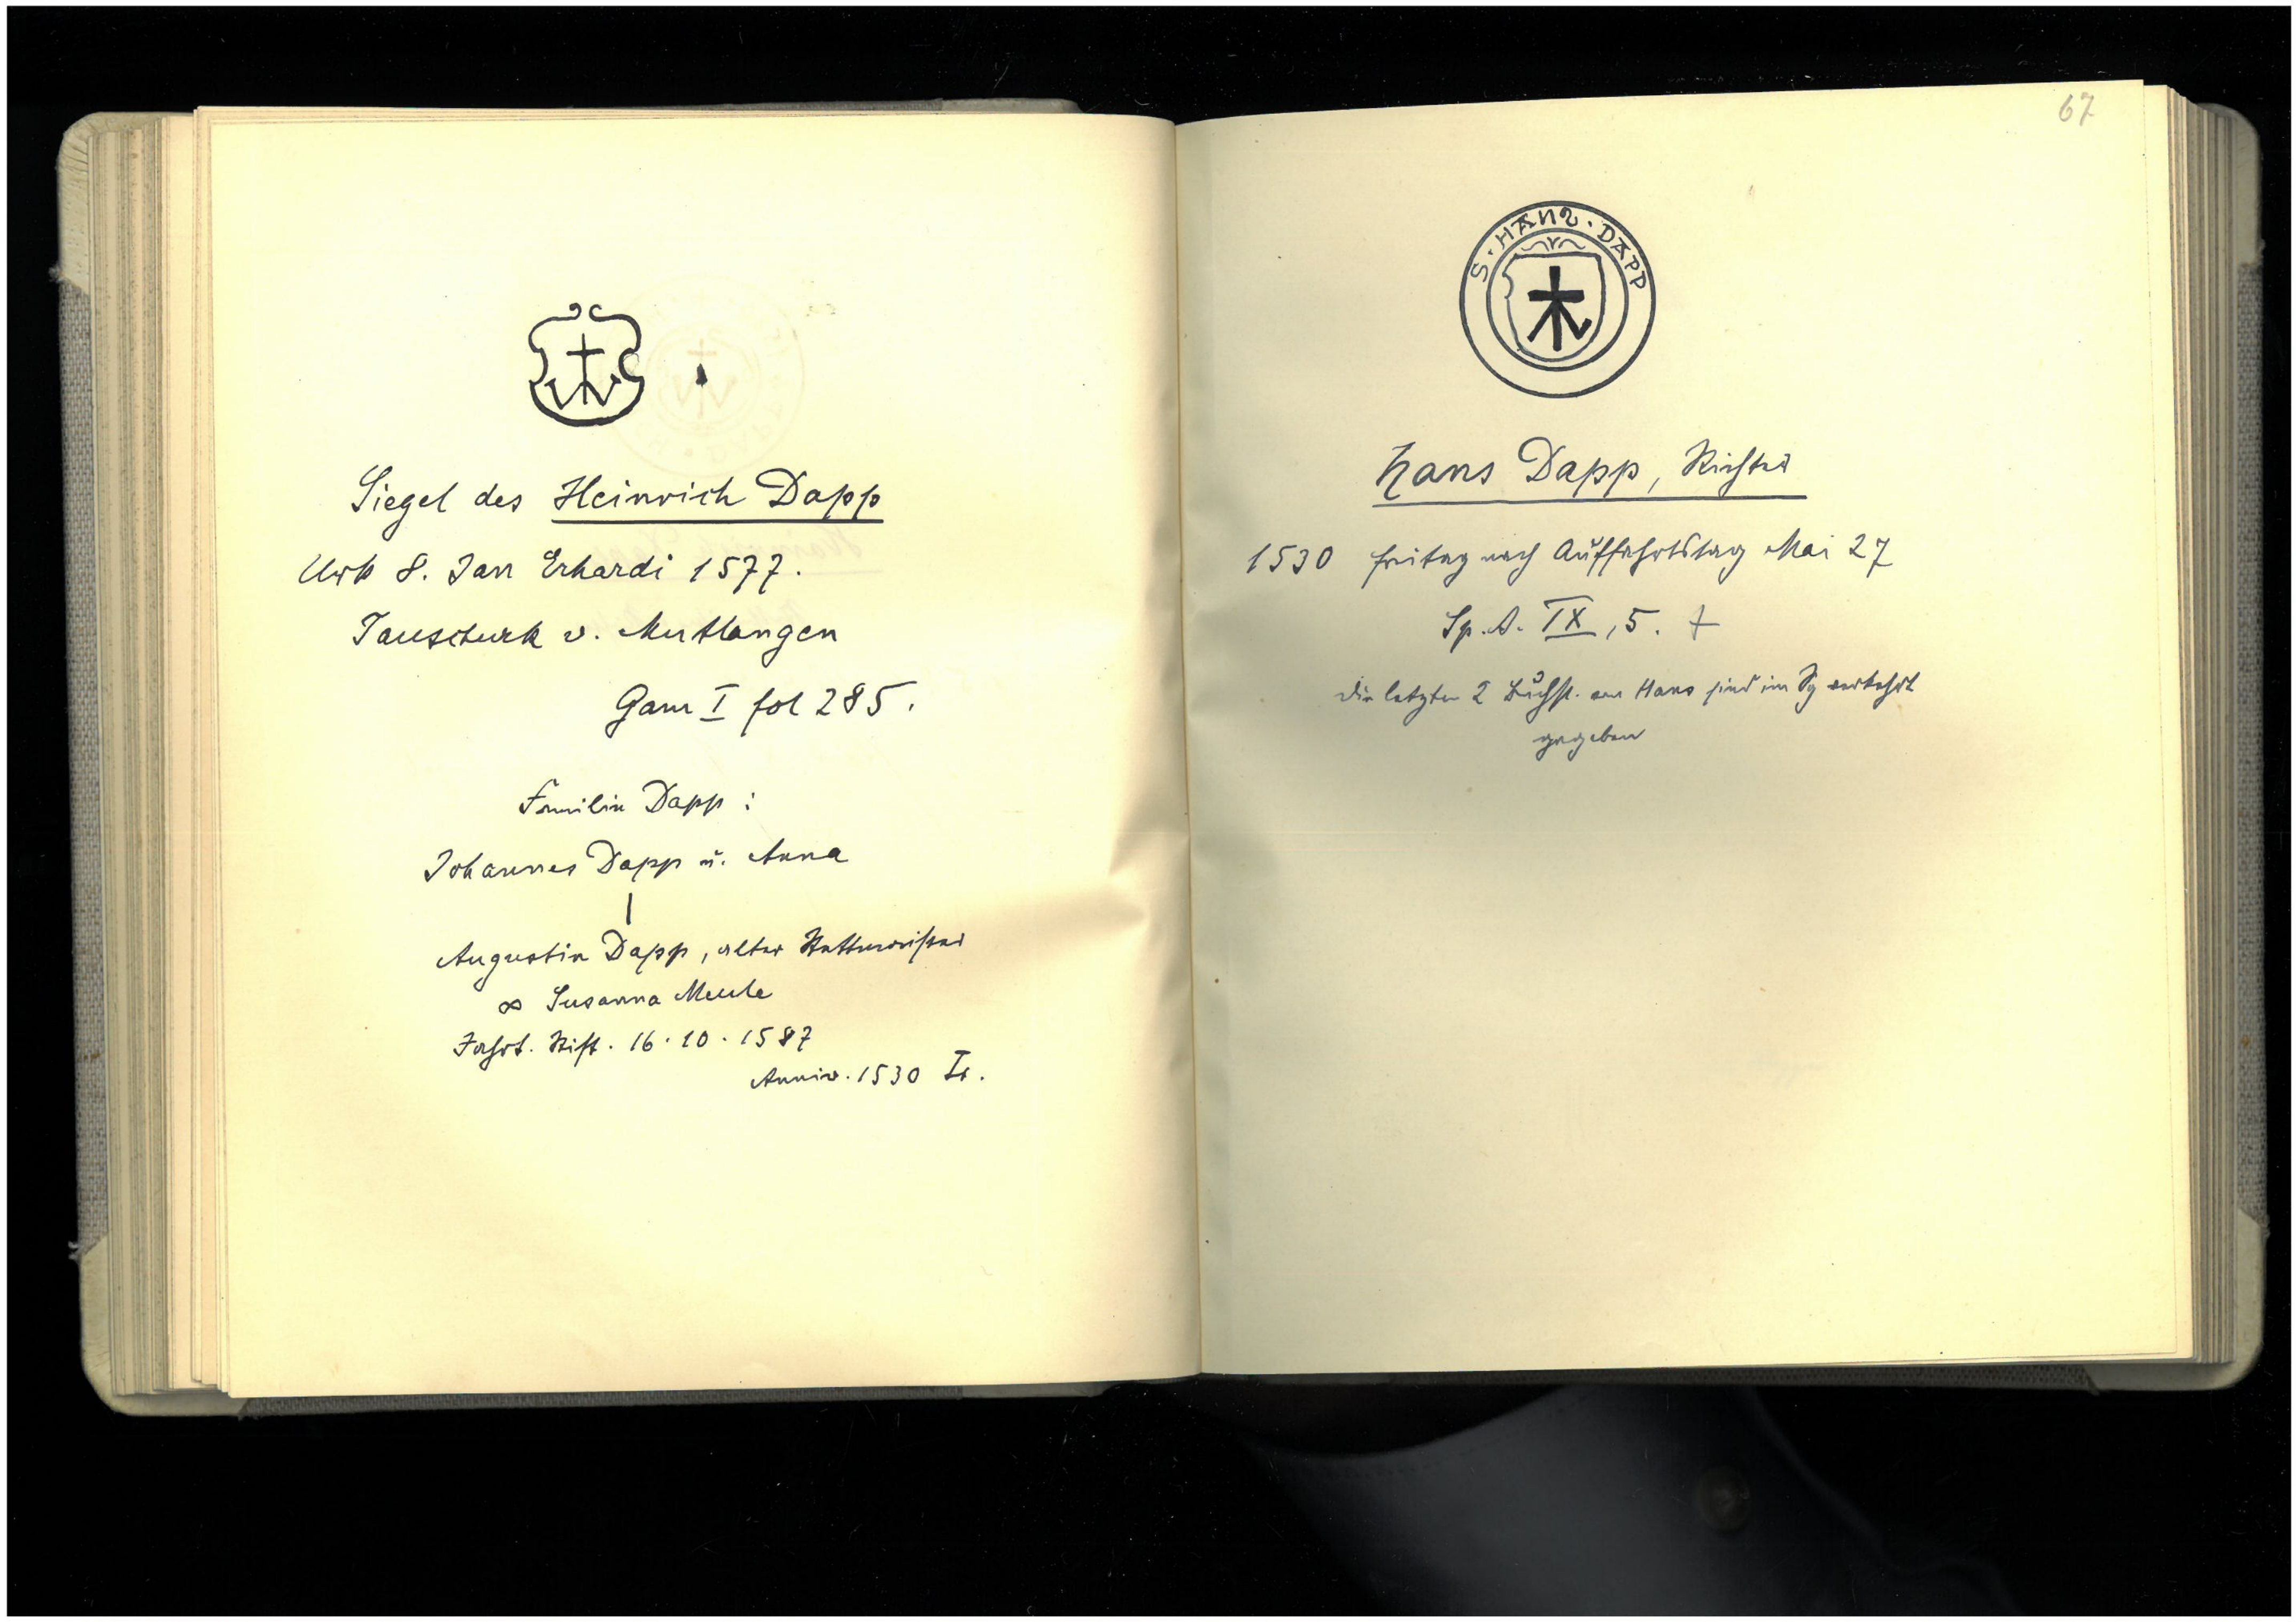 Siegel des Heinrich Dapp
Urk 8. Jan Erhardi 1577.
Tauschurk v. Mutlangen
Gam I fol 285.
Familie Dapp :
Johannes Dapp u. Anna
Augustin Dapp, alter Stattmeister
∞ Susanna Meule
Jahrt. Stift. 16.10.1587
Anniv. 1530 Ir.
67
S · HANS · DAPP
Hans Dapp, Richter
1530 freitag nach Auffahrtstag Mai 27
Sp. A. IX, 5.
die letzten 2 Buchst. von Hans sind im Sg verkehrt
gegeben